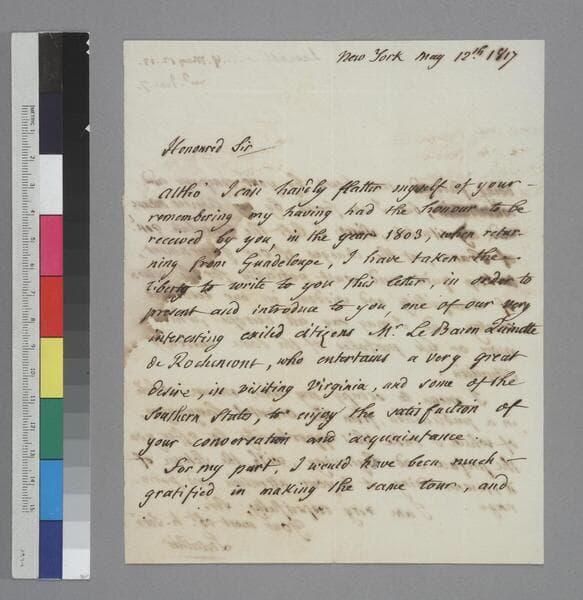 New York May 12th 1817
Honoured Sir
Altho' I can hardly flatter myself of your
remembering my having had the honour to be
received by you, in the year 1803, when retur-
ning from Guadeloupe, I have taken the
liberty to write to you this letter, in order to
present and introduce to you, one of our very
interesting exil'd citizens Mr. Le Baron Quinette
de Rochemont, who entertains a very great
desire, in visiting Virginia, and some of the
Southern States, to enjoy the satisfaction of
your conversation and acquaintance.
For my part, I would have been much
gratified in making the same tour, and